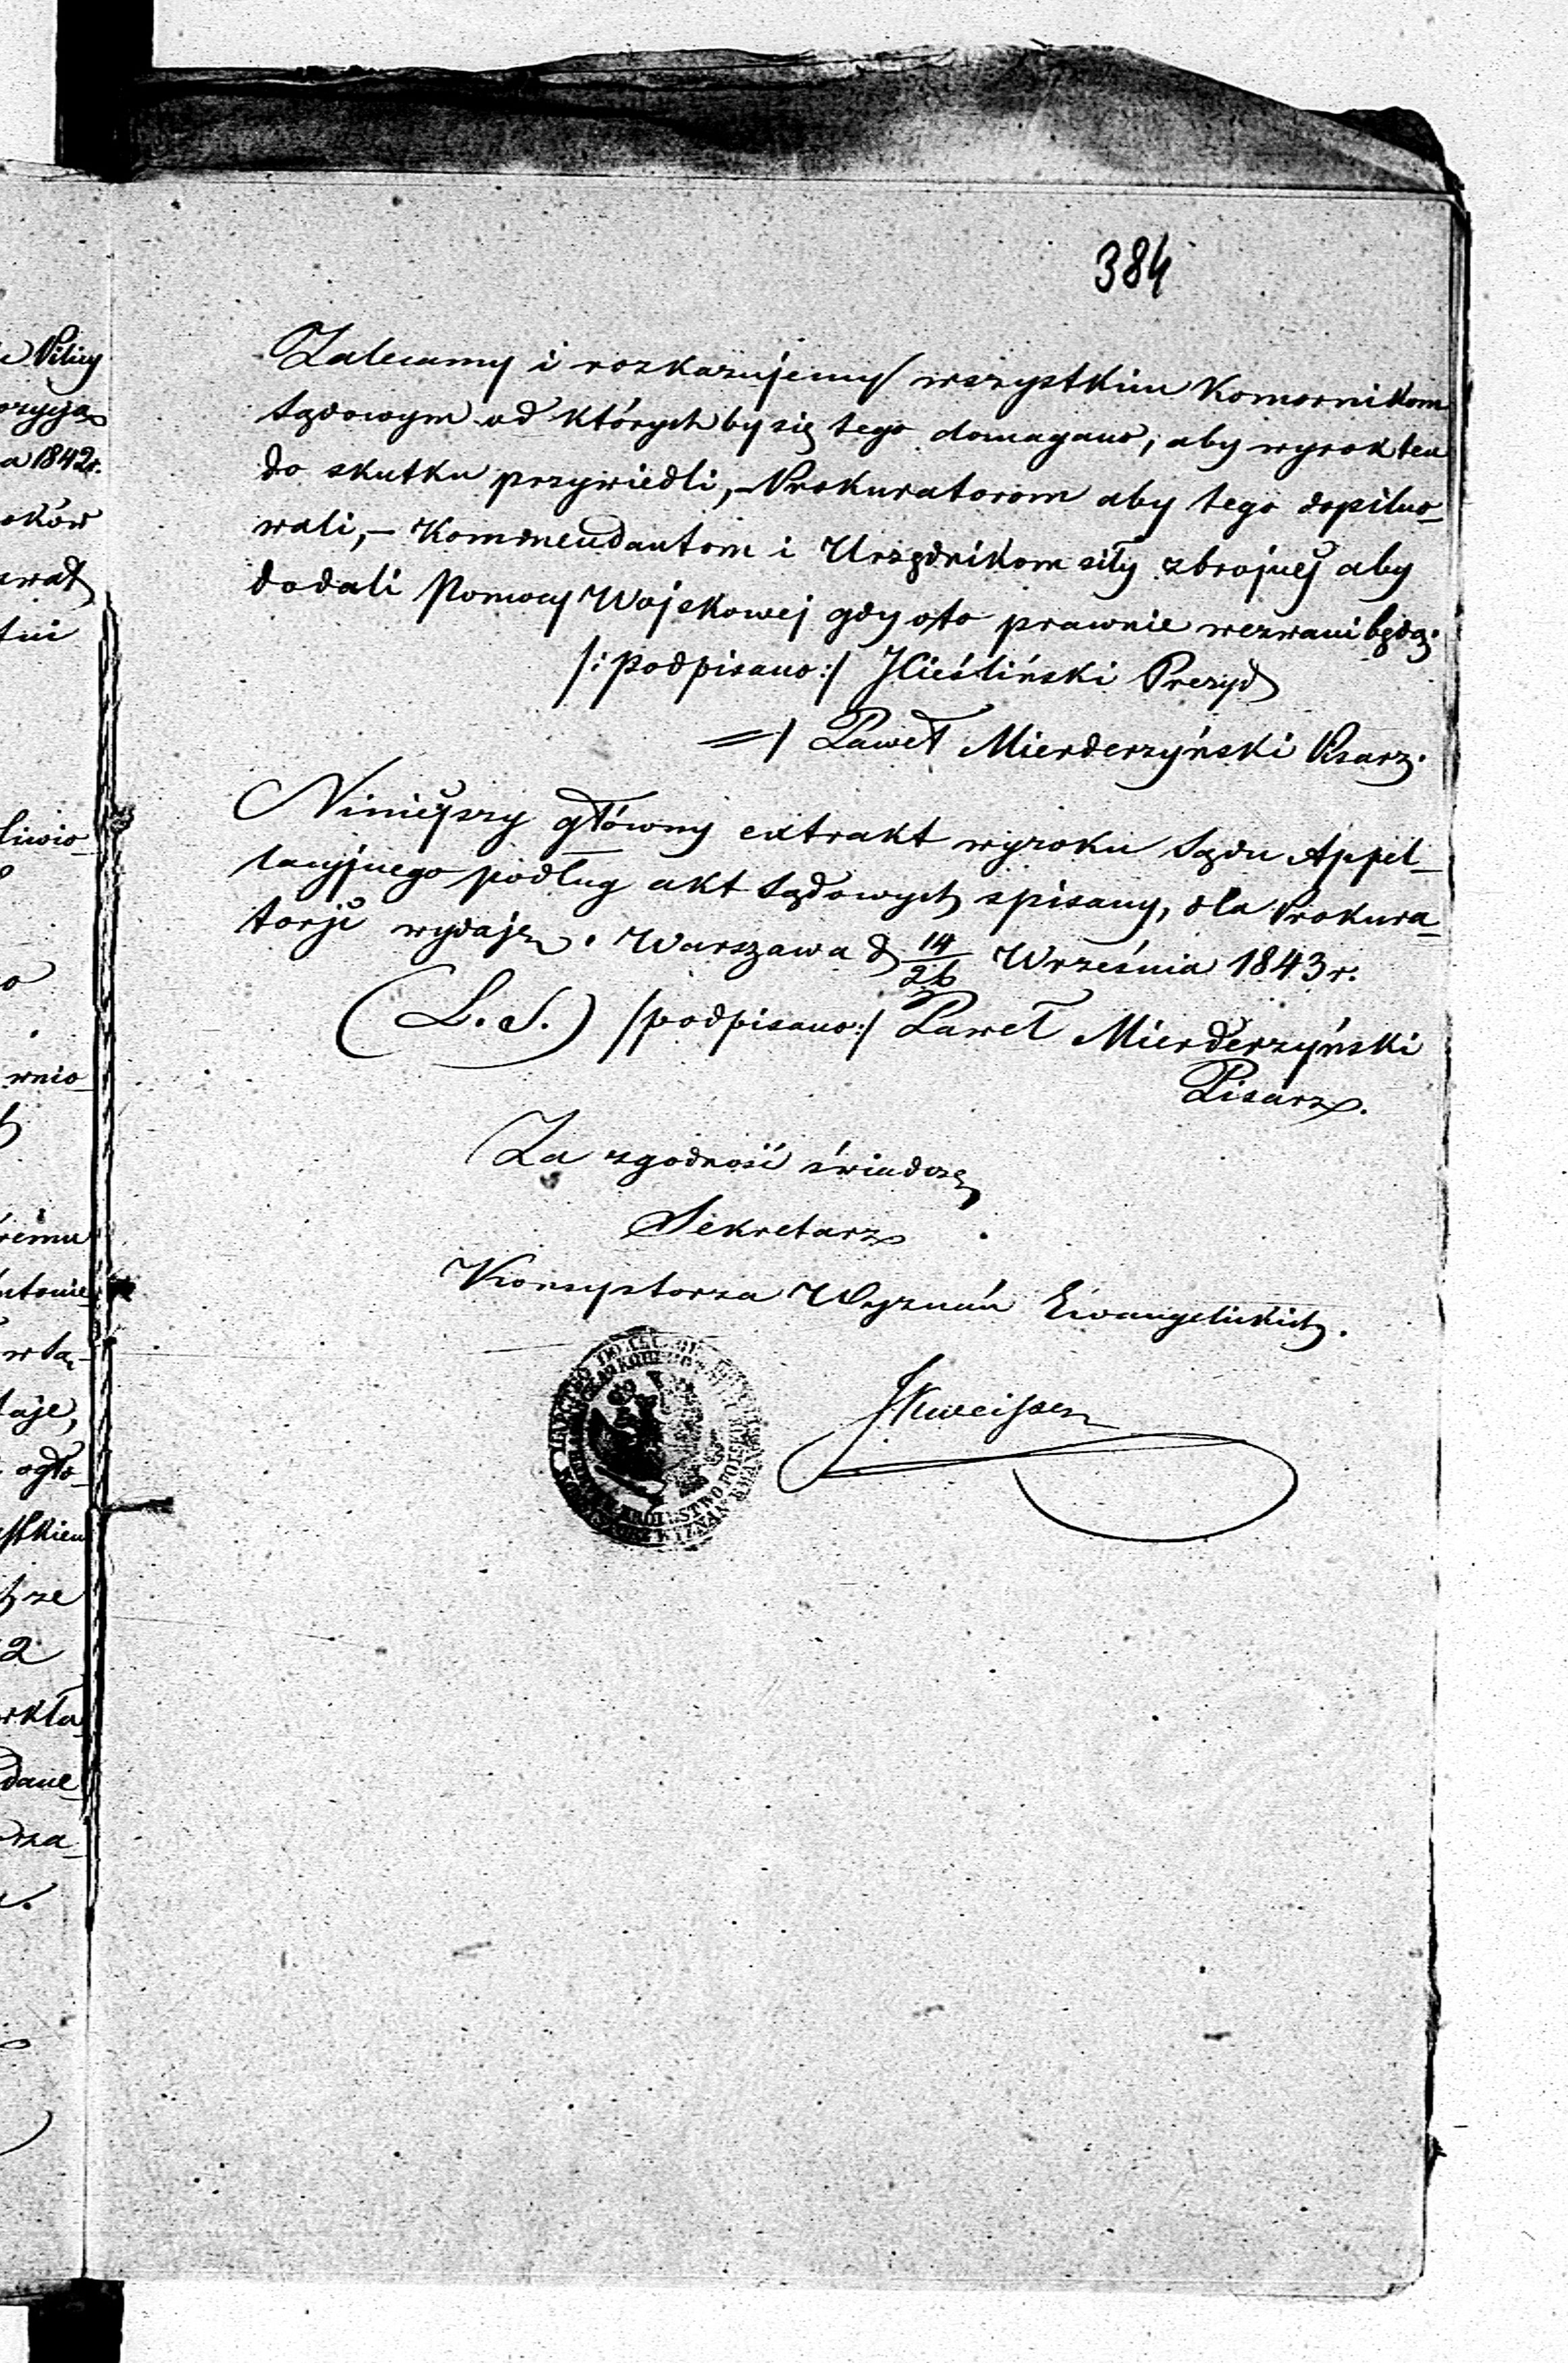 384
Zalecamy i rozkazujemy wszystkim Komornikom
Sądowym od którychby się tego domagano, aby wyrok ten
do skutku przywiedli, – Prokuratorom aby tego dopilno-
wali, – Kommendantom i Urzędnikom siły zbrojnéj aby
dodali Pomocy Wojskowej gdy o to prawnie wezwani będą.
/:podpisano:/ J Cieśliński Prezyd
=/ Paweł Mierderzyński Pisarz.
Niniéjszy główny extrakt wyroku Sądu Appel-
lacyjnego podług akt Sądowych spisany, dla Prokura-
torji wydaję. Warszawa d 14/26 Września 1843 r.
(L. S.) /podpisano:/ Paweł Mierderzyński
Pisarz.
Za zgodność świadczę
Sekretarz
Konsystorza Wyznań Ewangelickich.